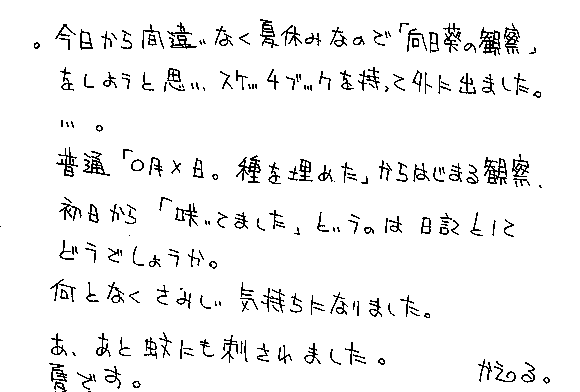 。今日から間違いなく夏休みなので「向日葵の観察」
をしようと思い、スケッチブックを持って外に出ました。
…。
普通「○月×日。種を埋めた」からはじまる観察、
初日から「咲いてました」というのは日記として
どうでしょうか。
何となくさみしい気持ちになりました。
あ、あと蚊にも刺されました。
夏です。
かえる。